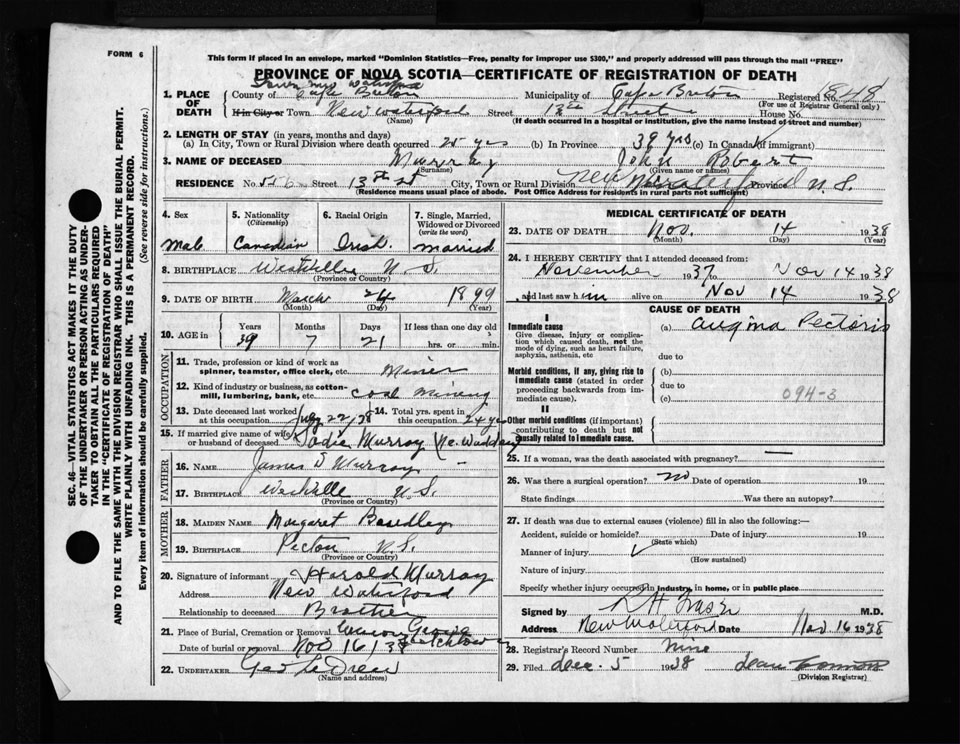 FORM 6
This form if placed in an envelope, marked "Dominion Statistics—Free, penalty for improper use $300," and properly addressed will pass through the mail "FREE"
PROVINCE OF NOVA SCOTIA—CERTIFICATE OF REGISTRATION OF DEATH
1. PLACE OF DEATH County of Cape Breton Municipality of Cape Breton Registered No. 848
(For use of Registrar General only)
If in City or Town New Waterford Street 13th Street House No.
(Name) (If death occurred in a hospital or institution, give the name instead of street and number)
2. LENGTH OF STAY (in years, months and days)
(a) In City, Town or Rural Division where death occurred 25 yrs (b) In Province 39 yrs (c) In Canada (if immigrant)
3. NAME OF DECEASED Murray John Robert
(Surname) (Given name or names)
RESIDENCE No. Street 13th St City, Town or Rural Division New Waterford Province N. S.
(Residence means usual place of abode. Post Office Address for residents in rural parts not sufficient)
4. Sex 5. Nationality (Citizenship) 6. Racial Origin 7. Single, Married, Widowed or Divorced (write the word)
Male Canadian Irish married
8. BIRTHPLACE Westville N. S.
(Province or Country)
9. DATE OF BIRTH March 24 1899
(Month) (Day) (Year)
10. AGE in Years Months Days If less than one day old
39 7 21 hrs. or min.
OCCUPATION
11. Trade, profession or kind of work as spinner, teamster, office clerk, etc. Miner
12. Kind of industry or business, as cotton-mill, lumbering, bank, etc. Coal Mining
13. Date deceased last worked at this occupation July 22/38 14. Total yrs. spent in this occupation 24 yrs
15. If married give name of wife or husband of deceased Sadie Murray
FATHER
16. NAME James S Murray
17. BIRTHPLACE Westville N.S.
(Province or Country)
MOTHER
18. MAIDEN NAME Margaret
19. BIRTHPLACE Pictou N.S.
(Province or Country)
20. Signature of informant Harold Murray
Address New Waterford
Relationship to deceased Brother
21. Place of Burial, Cremation or Removal
Date of burial or removal Nov 16/38
22. UNDERTAKER Geo
(Name and address)
MEDICAL CERTIFICATE OF DEATH
23. DATE OF DEATH Nov. 14 1938
(Month) (Day) (Year)
24. I HEREBY CERTIFY that I attended deceased from:
November 1937 to Nov 14 1938
and last saw him alive on Nov 14 1938
CAUSE OF DEATH
I
Immediate cause (a) Angina Pectoris
Give disease, injury or complication which caused death, not the mode of dying, such as heart failure, asphyxia, asthenia, etc
due to
Morbid conditions, if any, giving rise to immediate cause (stated in order proceeding backwards from immediate cause).
(b)
due to
(c) 094-3
II
Other morbid conditions (if important) contributing to death but not causally related to immediate cause.
25. If a woman, was the death associated with pregnancy?
26. Was there a surgical operation? no Date of operation 19
State findings Was there an autopsy?
27. If death was due to external causes (violence) fill in also the following:—
Accident, suicide or homicide? Date of injury 19
(State which)
Manner of injury
(How sustained)
Nature of injury
Specify whether injury occurred in industry, in home, or in public place
Signed by M.D.
Address New Waterford Date Nov 16 1938
28. Registrar's Record Number nine
29. Filed Dec. 5 1938
(Division Registrar)
SEC. 46—VITAL STATISTICS ACT MAKES IT THE DUTY
OF THE UNDERTAKER OR PERSON ACTING AS UNDER-
TAKER TO OBTAIN ALL THE PARTICULARS REQUIRED
IN THE "CERTIFICATE OF REGISTRATION OF DEATH"
AND TO FILE THE SAME WITH THE DIVISION REGISTRAR WHO SHALL ISSUE THE BURIAL PERMIT.
WRITE PLAINLY WITH UNFADING INK. THIS IS A PERMANENT RECORD.
Every item of information should be carefully supplied. (See reverse side for instructions.)